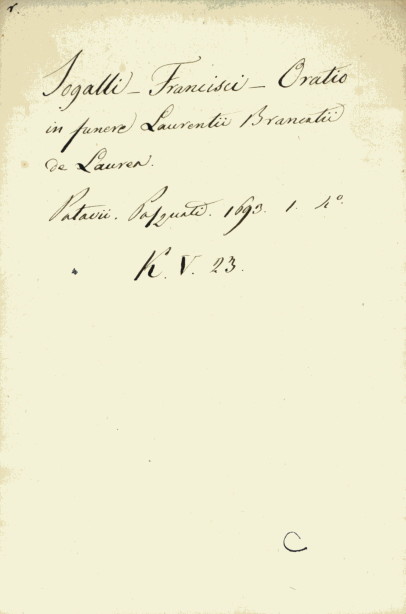 r.
Fogalli - Francisci - Oratio
in funere Laurentii Brancatii
de Laurea.
Patavii. Pasquati. 1693. 1. 4º.
K. V. 23.
C